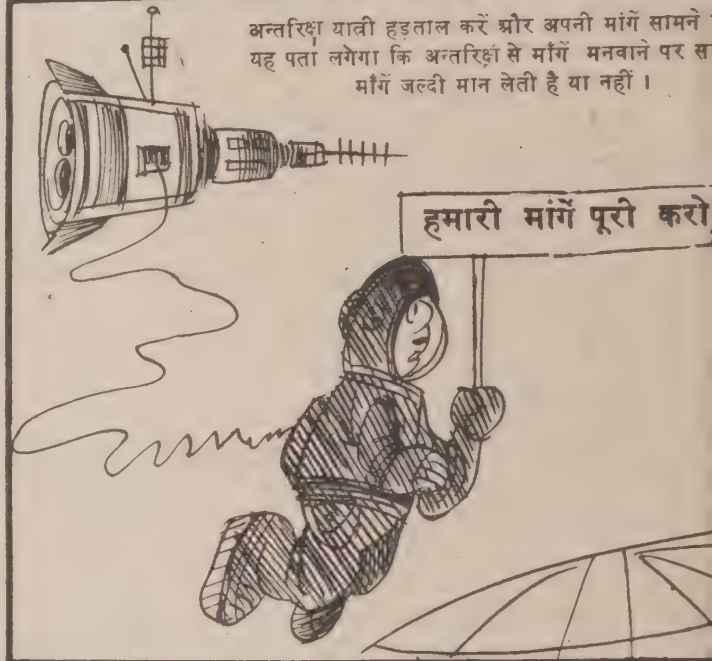 अन्तरिक्ष यात्री हड़ताल करें और अपनी मांगें सामने
यह पता लगेगा कि अन्तरिक्ष से माँगें मनवाने पर
माँगें जल्दी मान लेती है या नहीं ।
हमारी मांगें पूरी करो